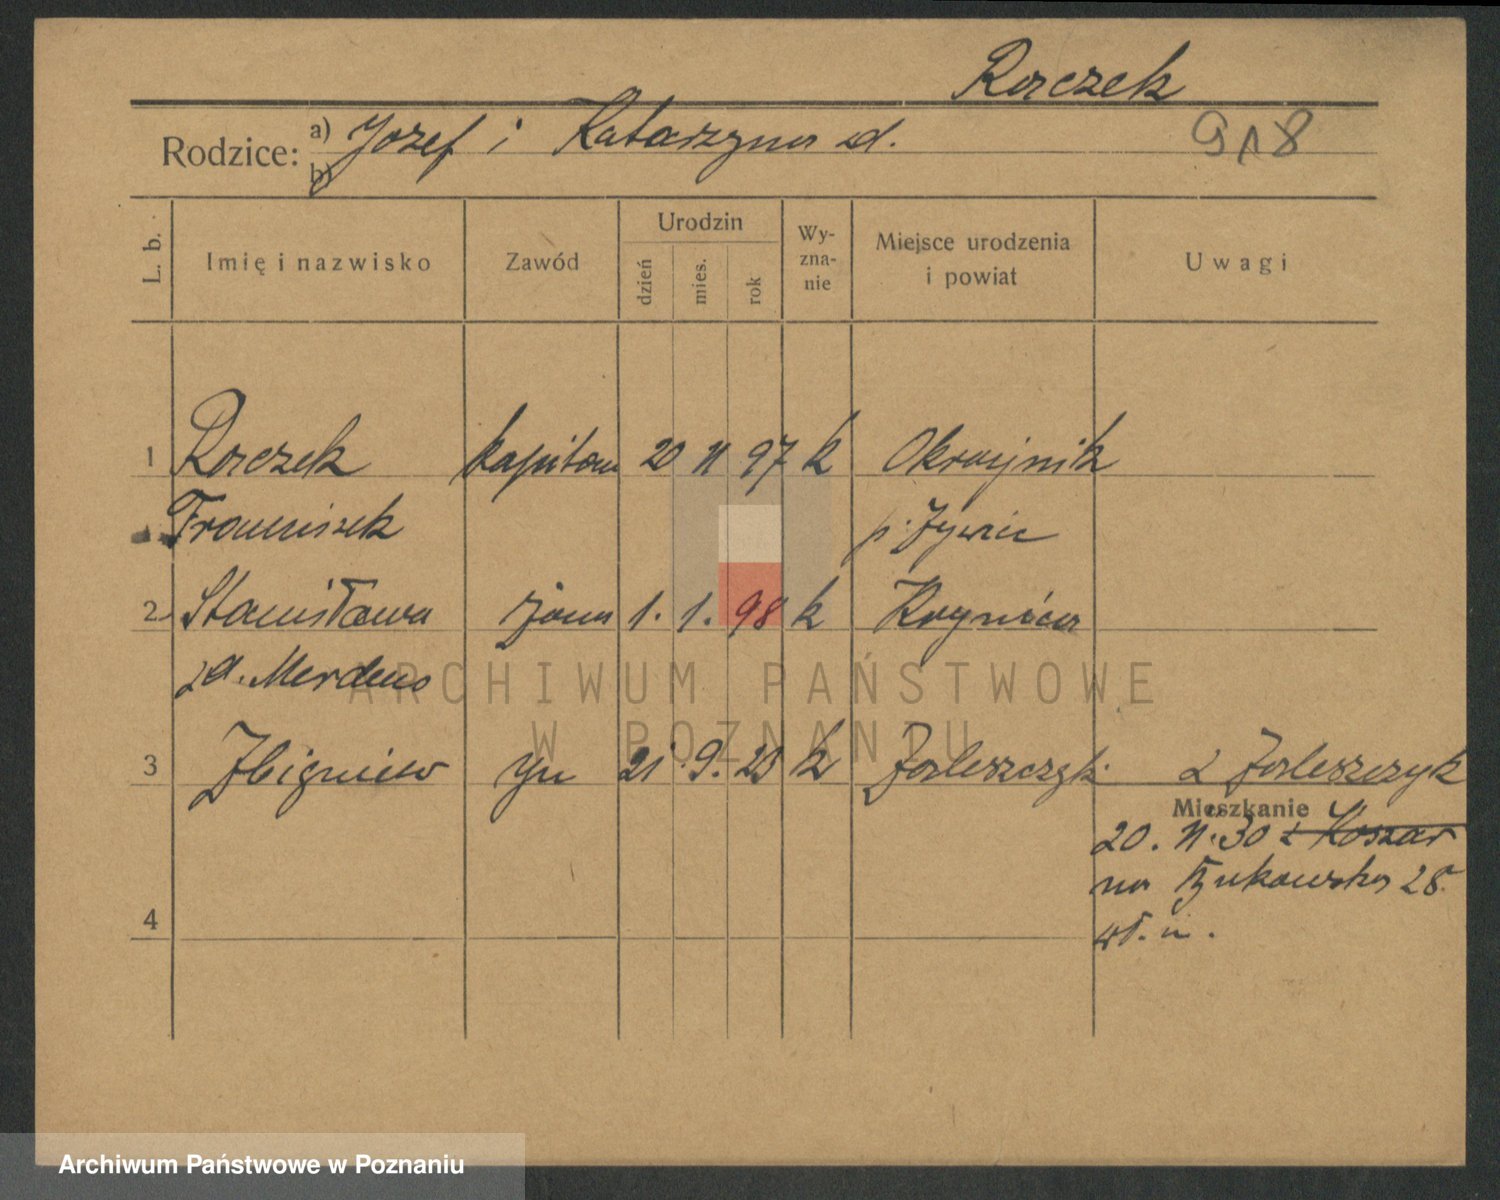 Rorczek
Rodzice: a) Jozef i Katarzyna zd. 918
b)
L. b. Imię i nazwisko Zawód Urodzin dzień mies. rok Wy-zna-nie Miejsce urodzenia i powiat Uwagi
1 Rorczek kapitan 20 11 97 k Okrajnik
Franciszek p. Żywiec
2 Stanisława żona 1. 1. 98 k Krynica
zd.
3 Zbigniew syn 21 9. k Zaleszczyk z Zaleszczyk
Mieszkanie
20. 11. 30 z Koszar
na Bukowska 28.
4 wł. m.
ARCHIWUM PAŃSTWOWE
W POZNANIU
Archiwum Państwowe w Poznaniu